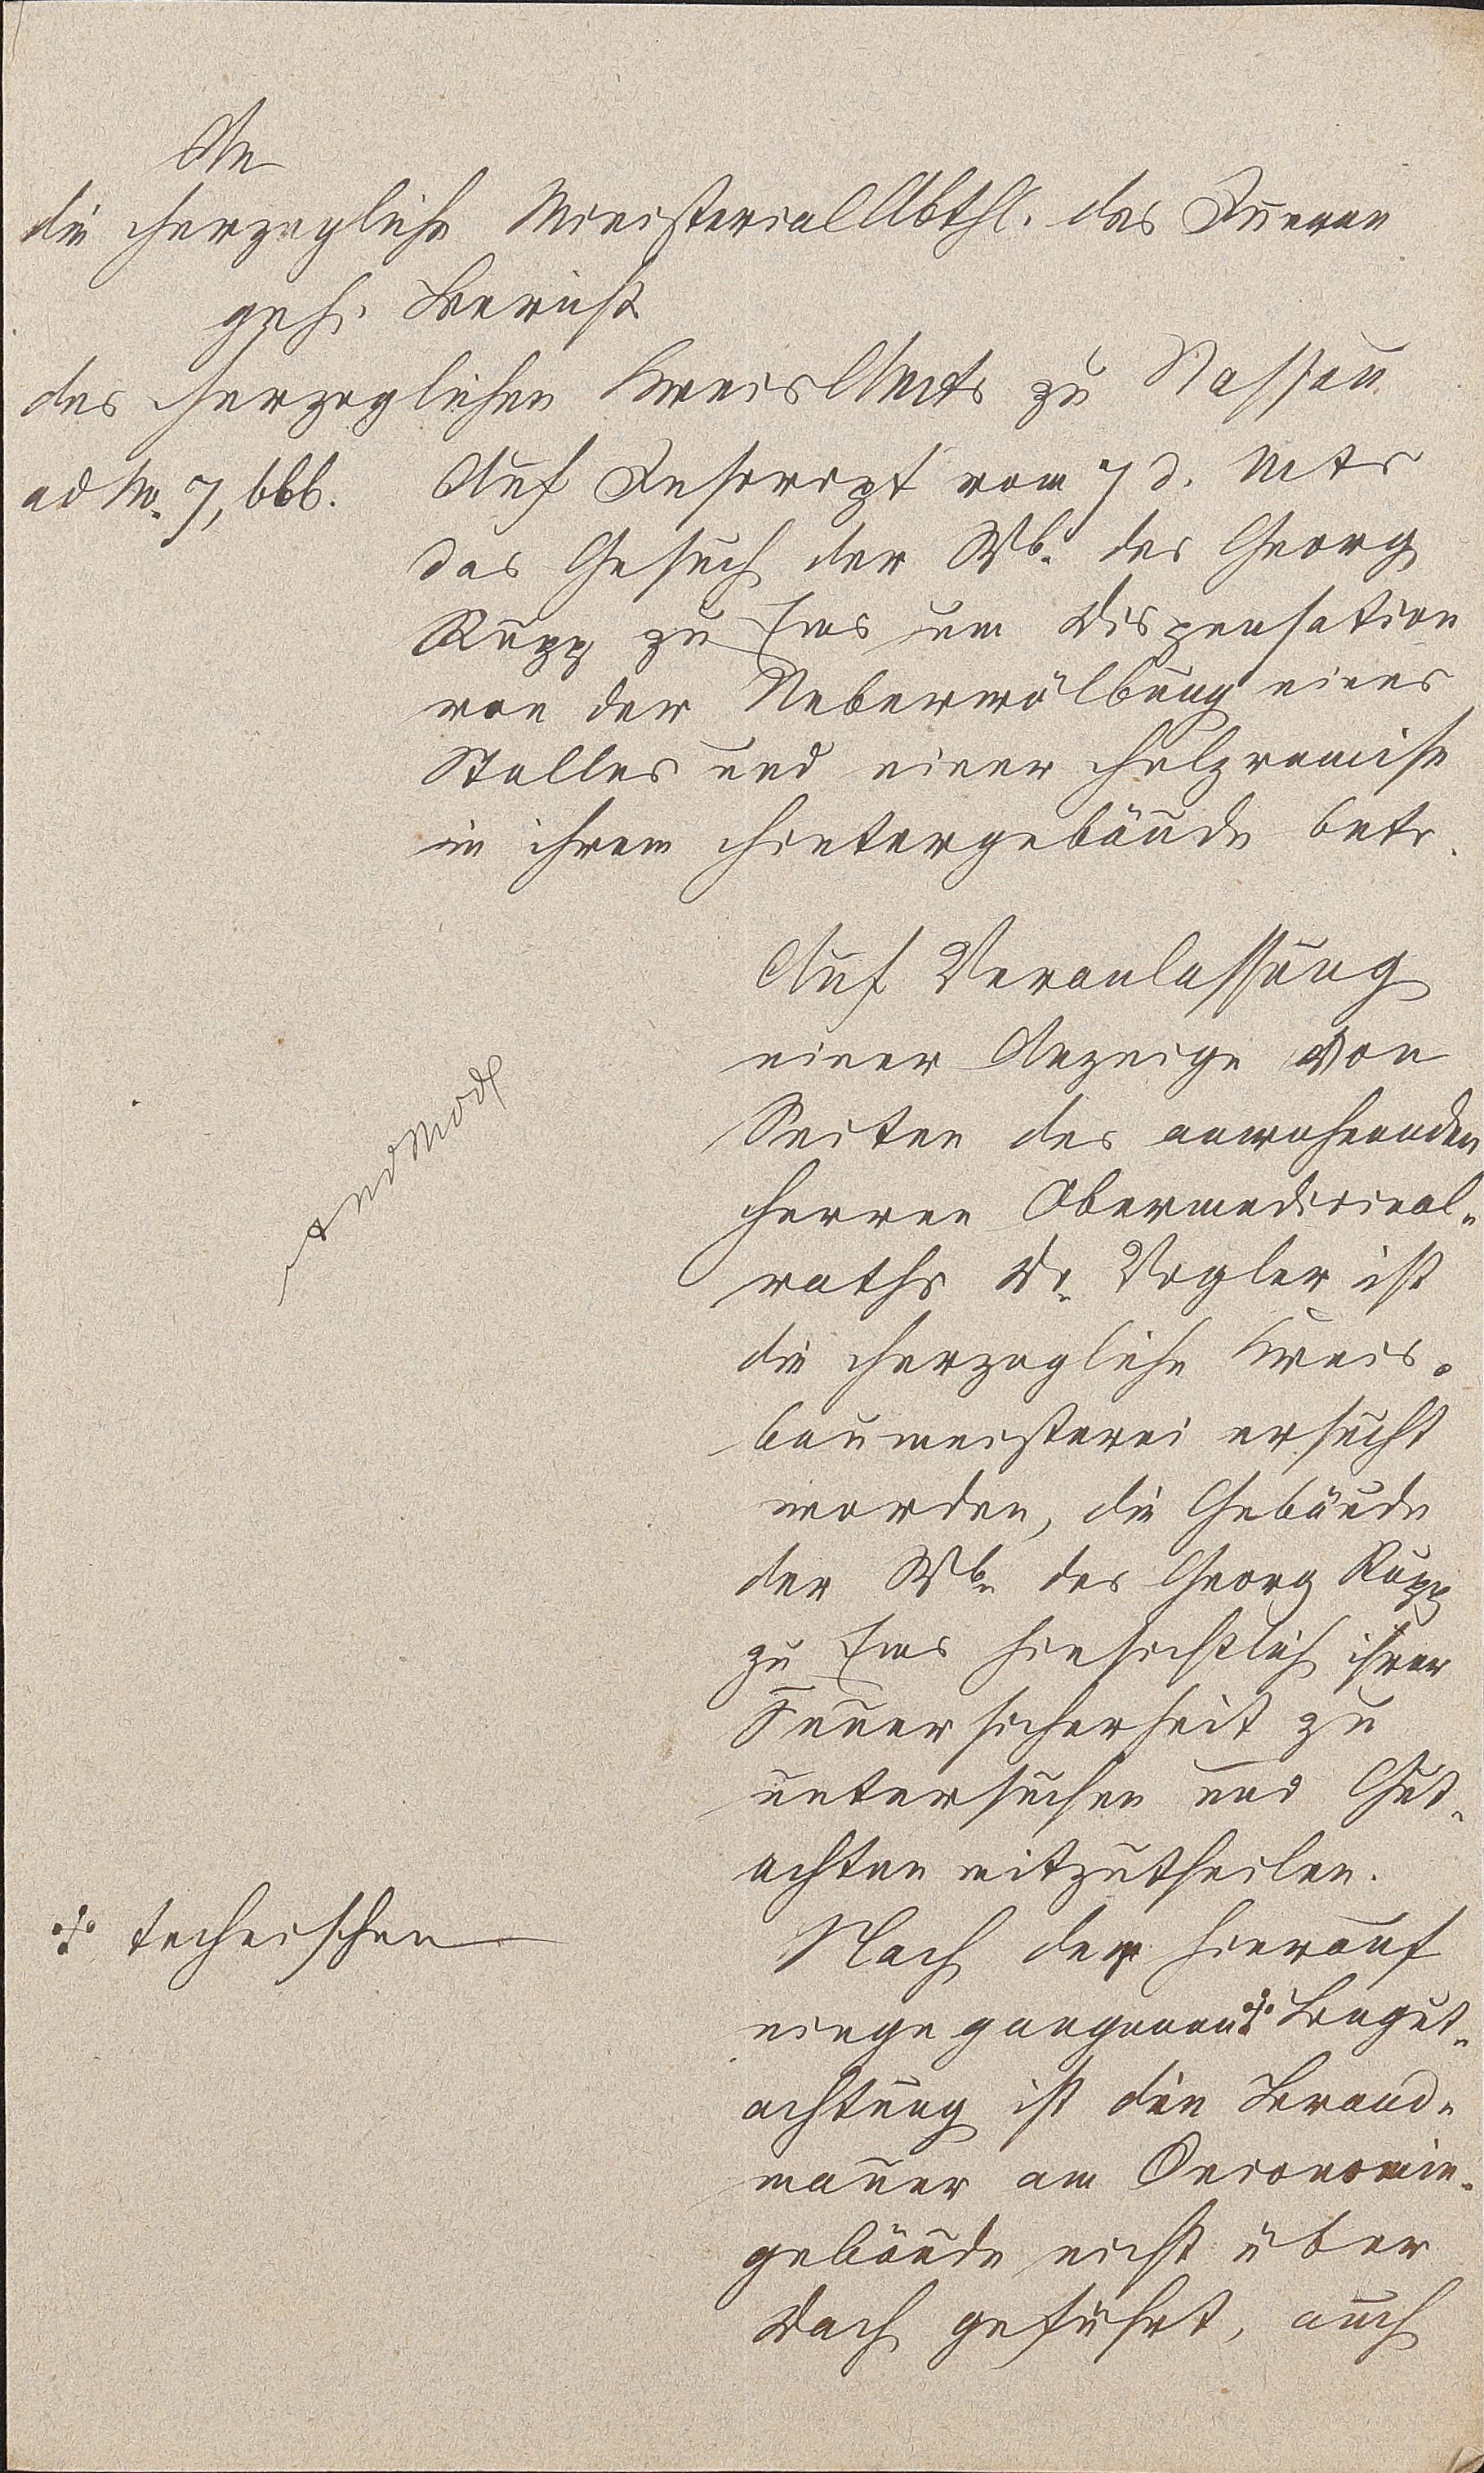 An
die Herzogliche Ministerial Abthl. des Innern
geh. Bericht
des Herzoglichen Kreis Amts zu Nassau
ad No. 7,666. Auf Inscript vom 7 d. Mts
das Gesuch der Wb. des Georg
Rupp zu Ems um Dispensation
von der Ueberwölbung eines
Stalles und einer Holzremise
in ihrem Hintergebäude betr.
Auf Veranlassung
einer Anzeige von
Seiten des anwohnenden
Herren Obermedicinal-
raths Dr. Vogler ist
die Herzogliche Kreis-
baumeisterei ersucht
worden, die Gebäude
der Wb. des Georg Rupp
zu Ems hinsichtlich ihrer
Feuersicherheit zu
untersuchen und Gut-
achten mitzutheilen.
⁒ technischen
Nach der hierauf
eingegangenen ⁒ Begut-
achtung ist die Brand-
mauer am Oeconomie-
gebäude nicht über
Dach geführt, auch